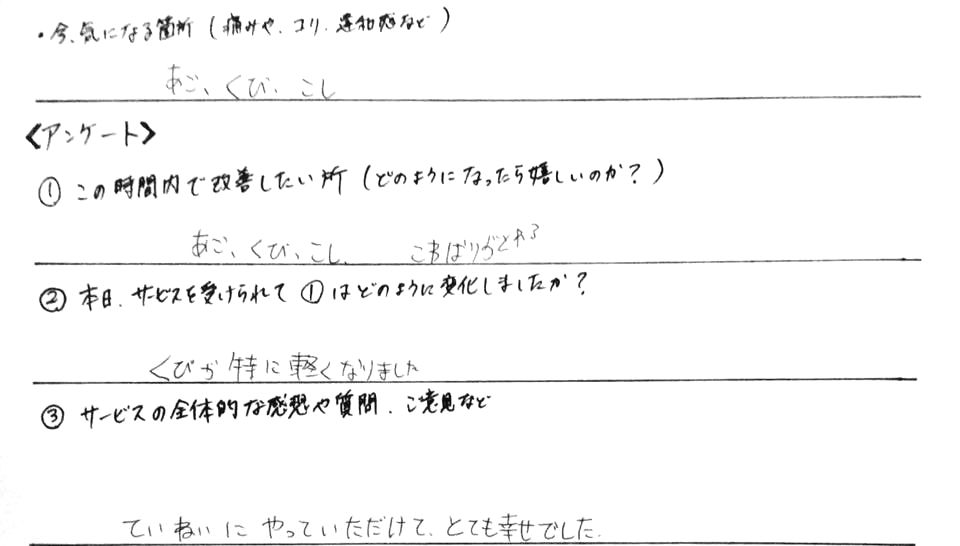 ・今、気になる箇所(痛みや、コリ、違和感など)
あご、くび、こし
<アンケート>
① この時間内で改善したい所(どのようになったら嬉しいのか?)
あご、くび、こし、 こわばりがとれる
② 本日、サービスを受けられて①はどのように変化しましたか?
くびが特に軽くなりました
③ サービスの全体的な感想や質問、ご意見など
ていねいにやっていただけて、とても幸せでした。